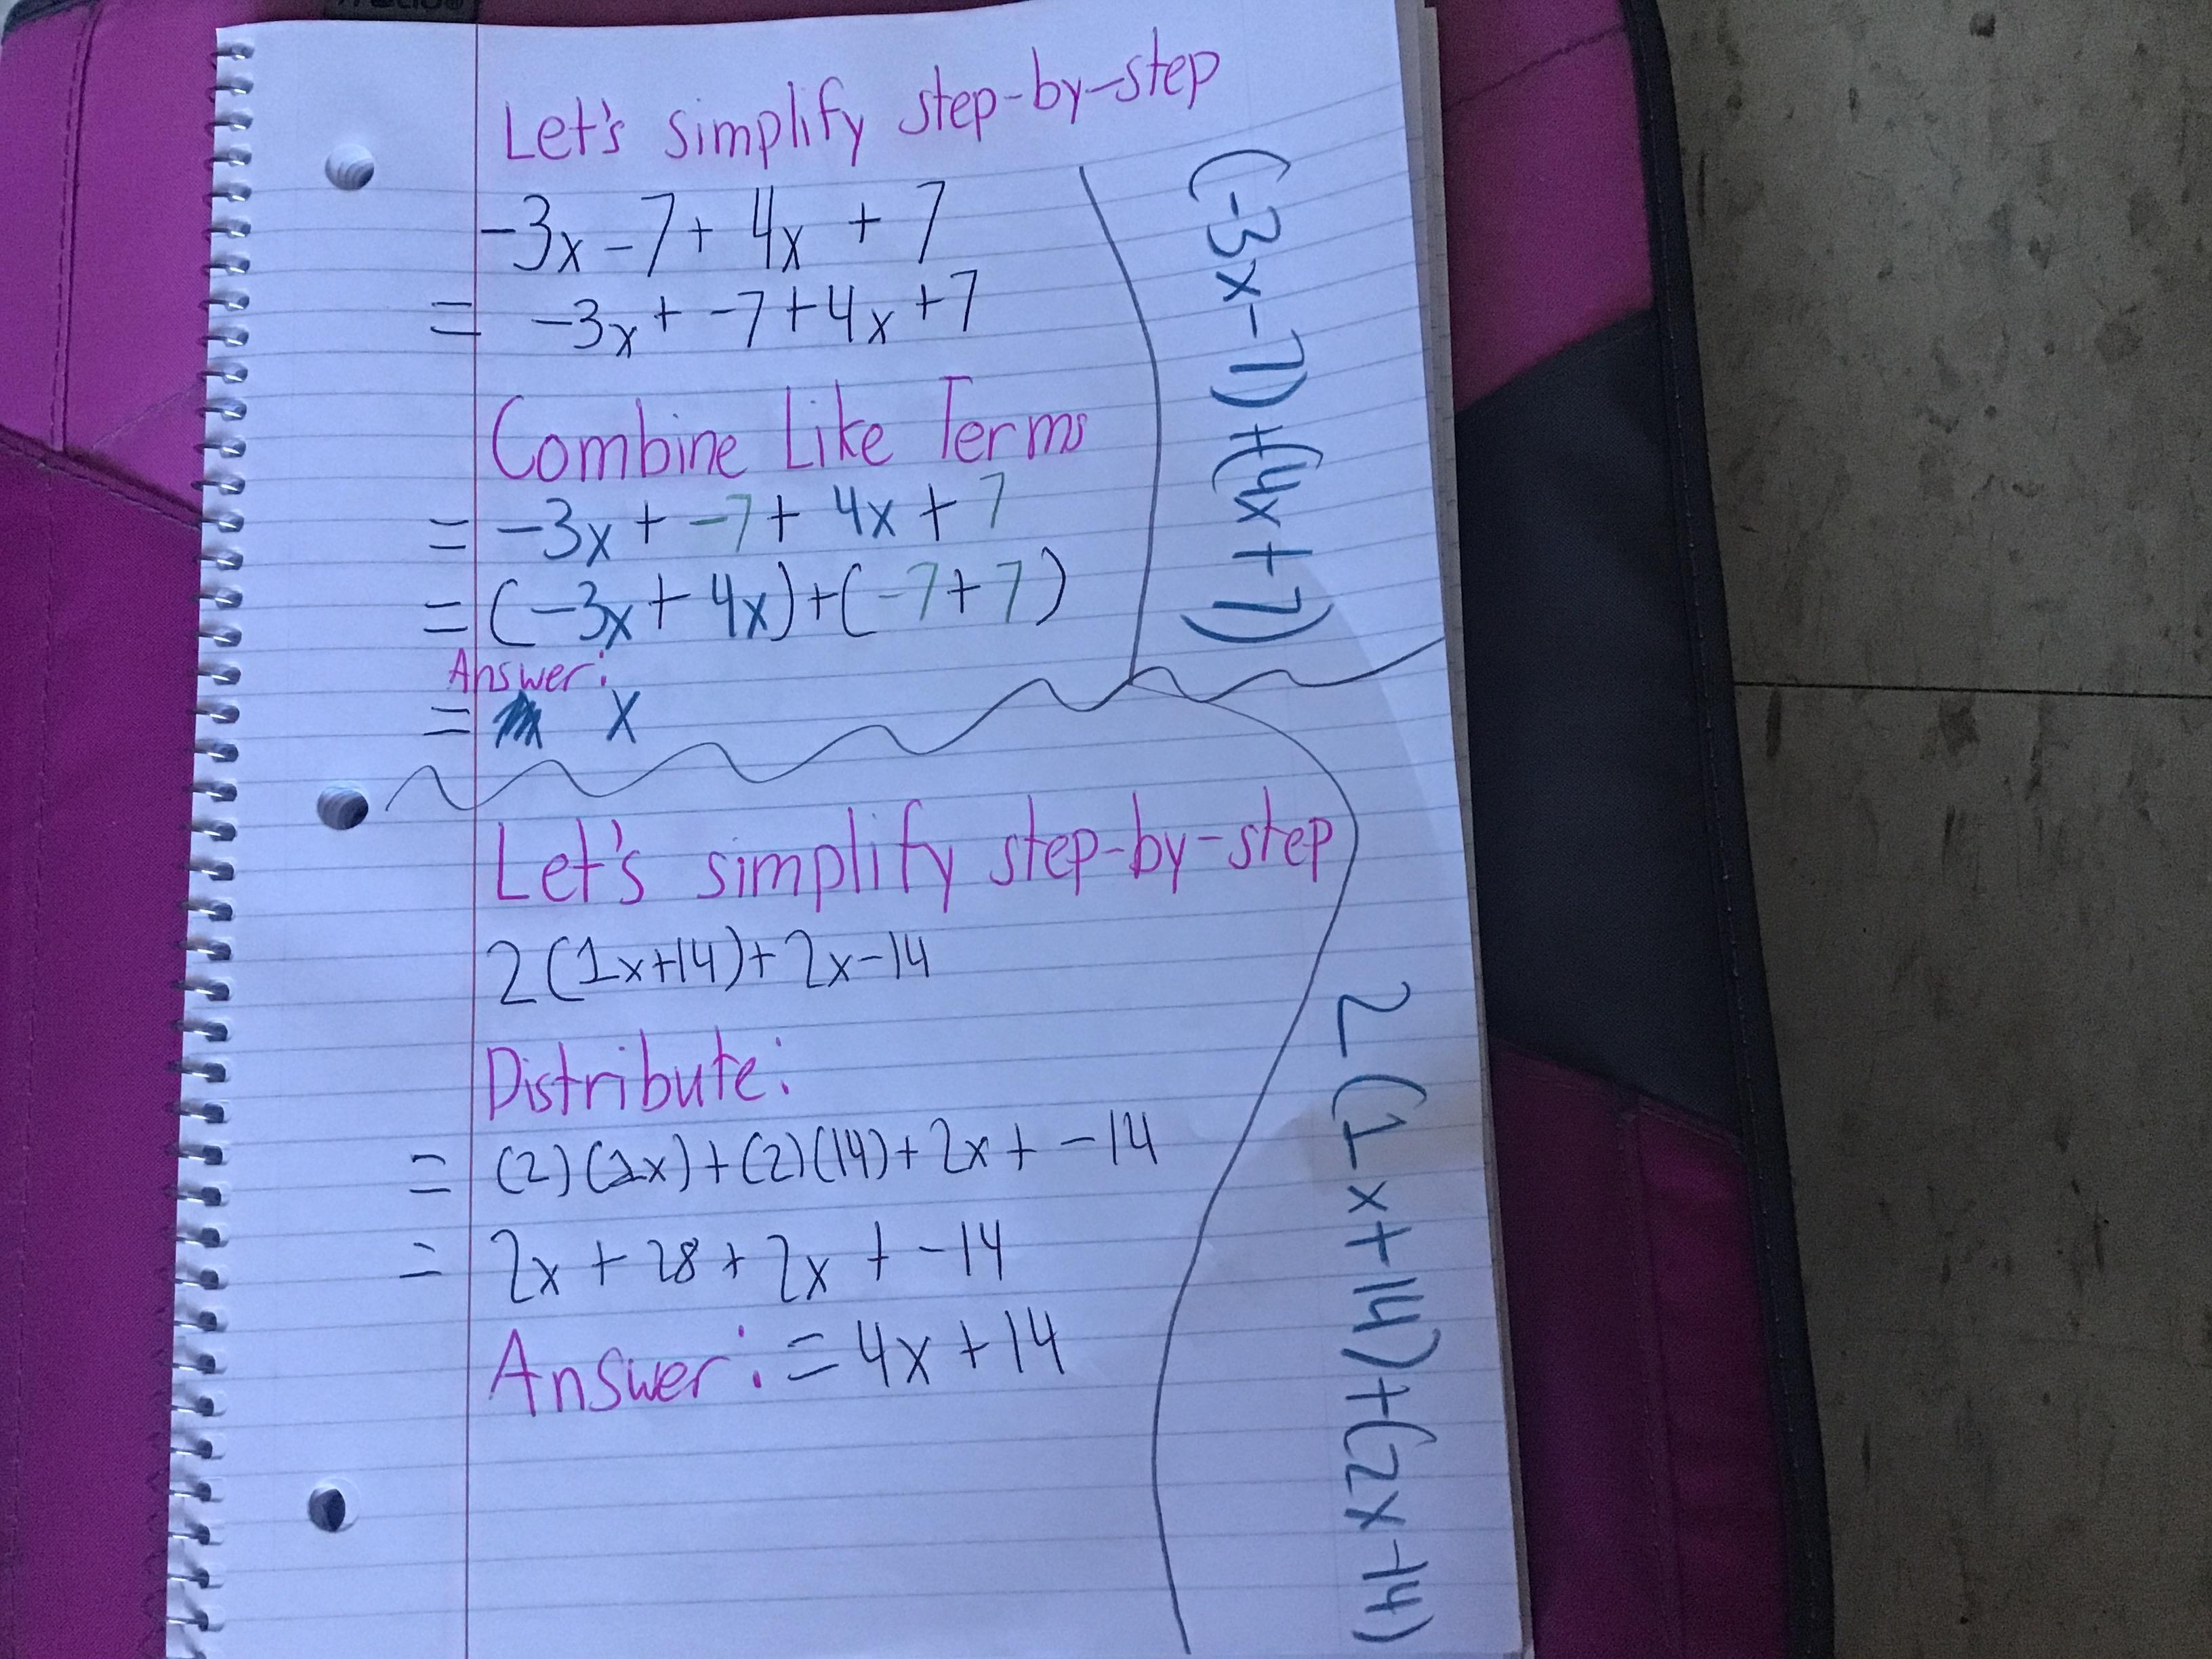 Let's simplify step-by-step
-3x-7+4x+7
= -3x+-7+4x+7
Combine Like Terms
= -3x+-7+4x+7
=(-3x+4x)+(-7+7)
Answer:
= x
(-3x-7)+(4x+7)
Let's simplify step-by-step
2(1x+14)+2x-14
Distribute:
= (2)(1x)+(2)(14)+2x+-14
= 2x+28+2x+-14
Answer: =4x+14
2(1x+14)+(2x-14)